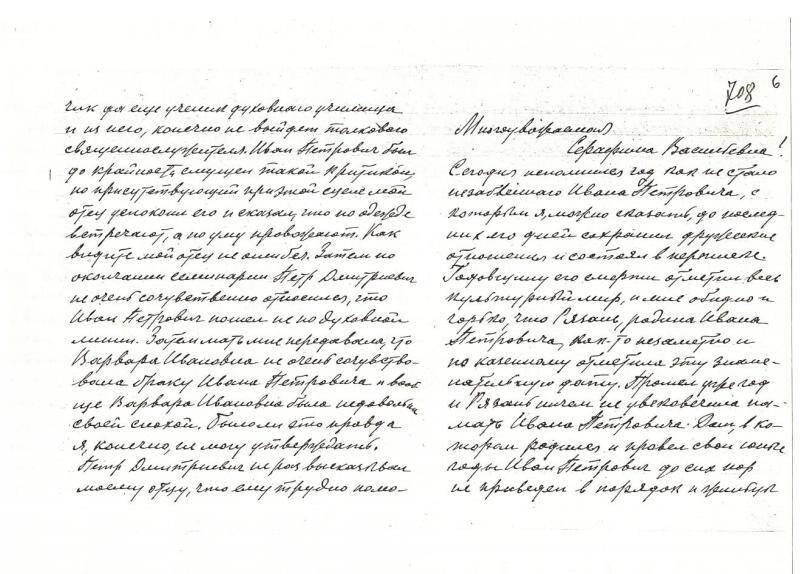 так для еще учения духовного училища
и из него, конечно не выйдет толкового
священнослужителя. Иван Петрович был
до крайности смущен такой критикой,
но присутствующий при этой сцене мой
отец успокоил его и сказал, что по одежде
встречают, а по уму провожают. Как
видите мой отец не ошибся. Затем по
окончании семинарии Петр Дмитриевич
не очень сочувственно относился, что
Иван Петрович пошел не по духовной
линии. Затем мать мне передавала, что
Варвара Ивановна не очень сочувство-
вала браку Ивана Петровича и вооб
ще Варвара Ивановна была недовольна
своей снохой. Было ли это правда
я, конечно, не могу утверждать.
Петр Дмитриевич не раз высказывал
моему отцу, что ему трудно помо-
708 6
Многоуважаемая
Серафима Васильевна!
Сегодня исполнился год как не стало
незабвенного Ивана Петровича, с
которым я, можно сказать, до послед-
них его дней сохранил дружеские
отношения и состоял в переписке.
Годовщину его смерти отметил весь
культурный мир, и мне обидно и
горько, что Рязань, родина Ивана
Петровича, как-то незаметно и
по казенному отметила эту знаме-
нательную дату. Прошел уже год
и Рязань ничем не увековечила па-
мять Ивана Петровича. Дом, в ко-
тором родился и провел свои юные
годы Иван Петрович до сих пор
не приведен в порядок и жильцы